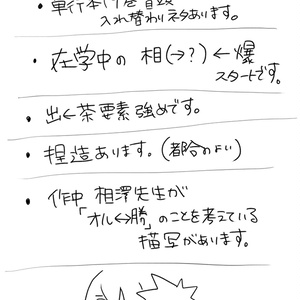 ・単行本17巻冒頭
入れ替わりネタあります。
・在学中の 相(→?)←爆
スタートです。
・出←茶要素強めです。
・捏造あります。(都合のよい)
・作中 相澤先生が
「オル↔勝」のことを考えている
描写があります。